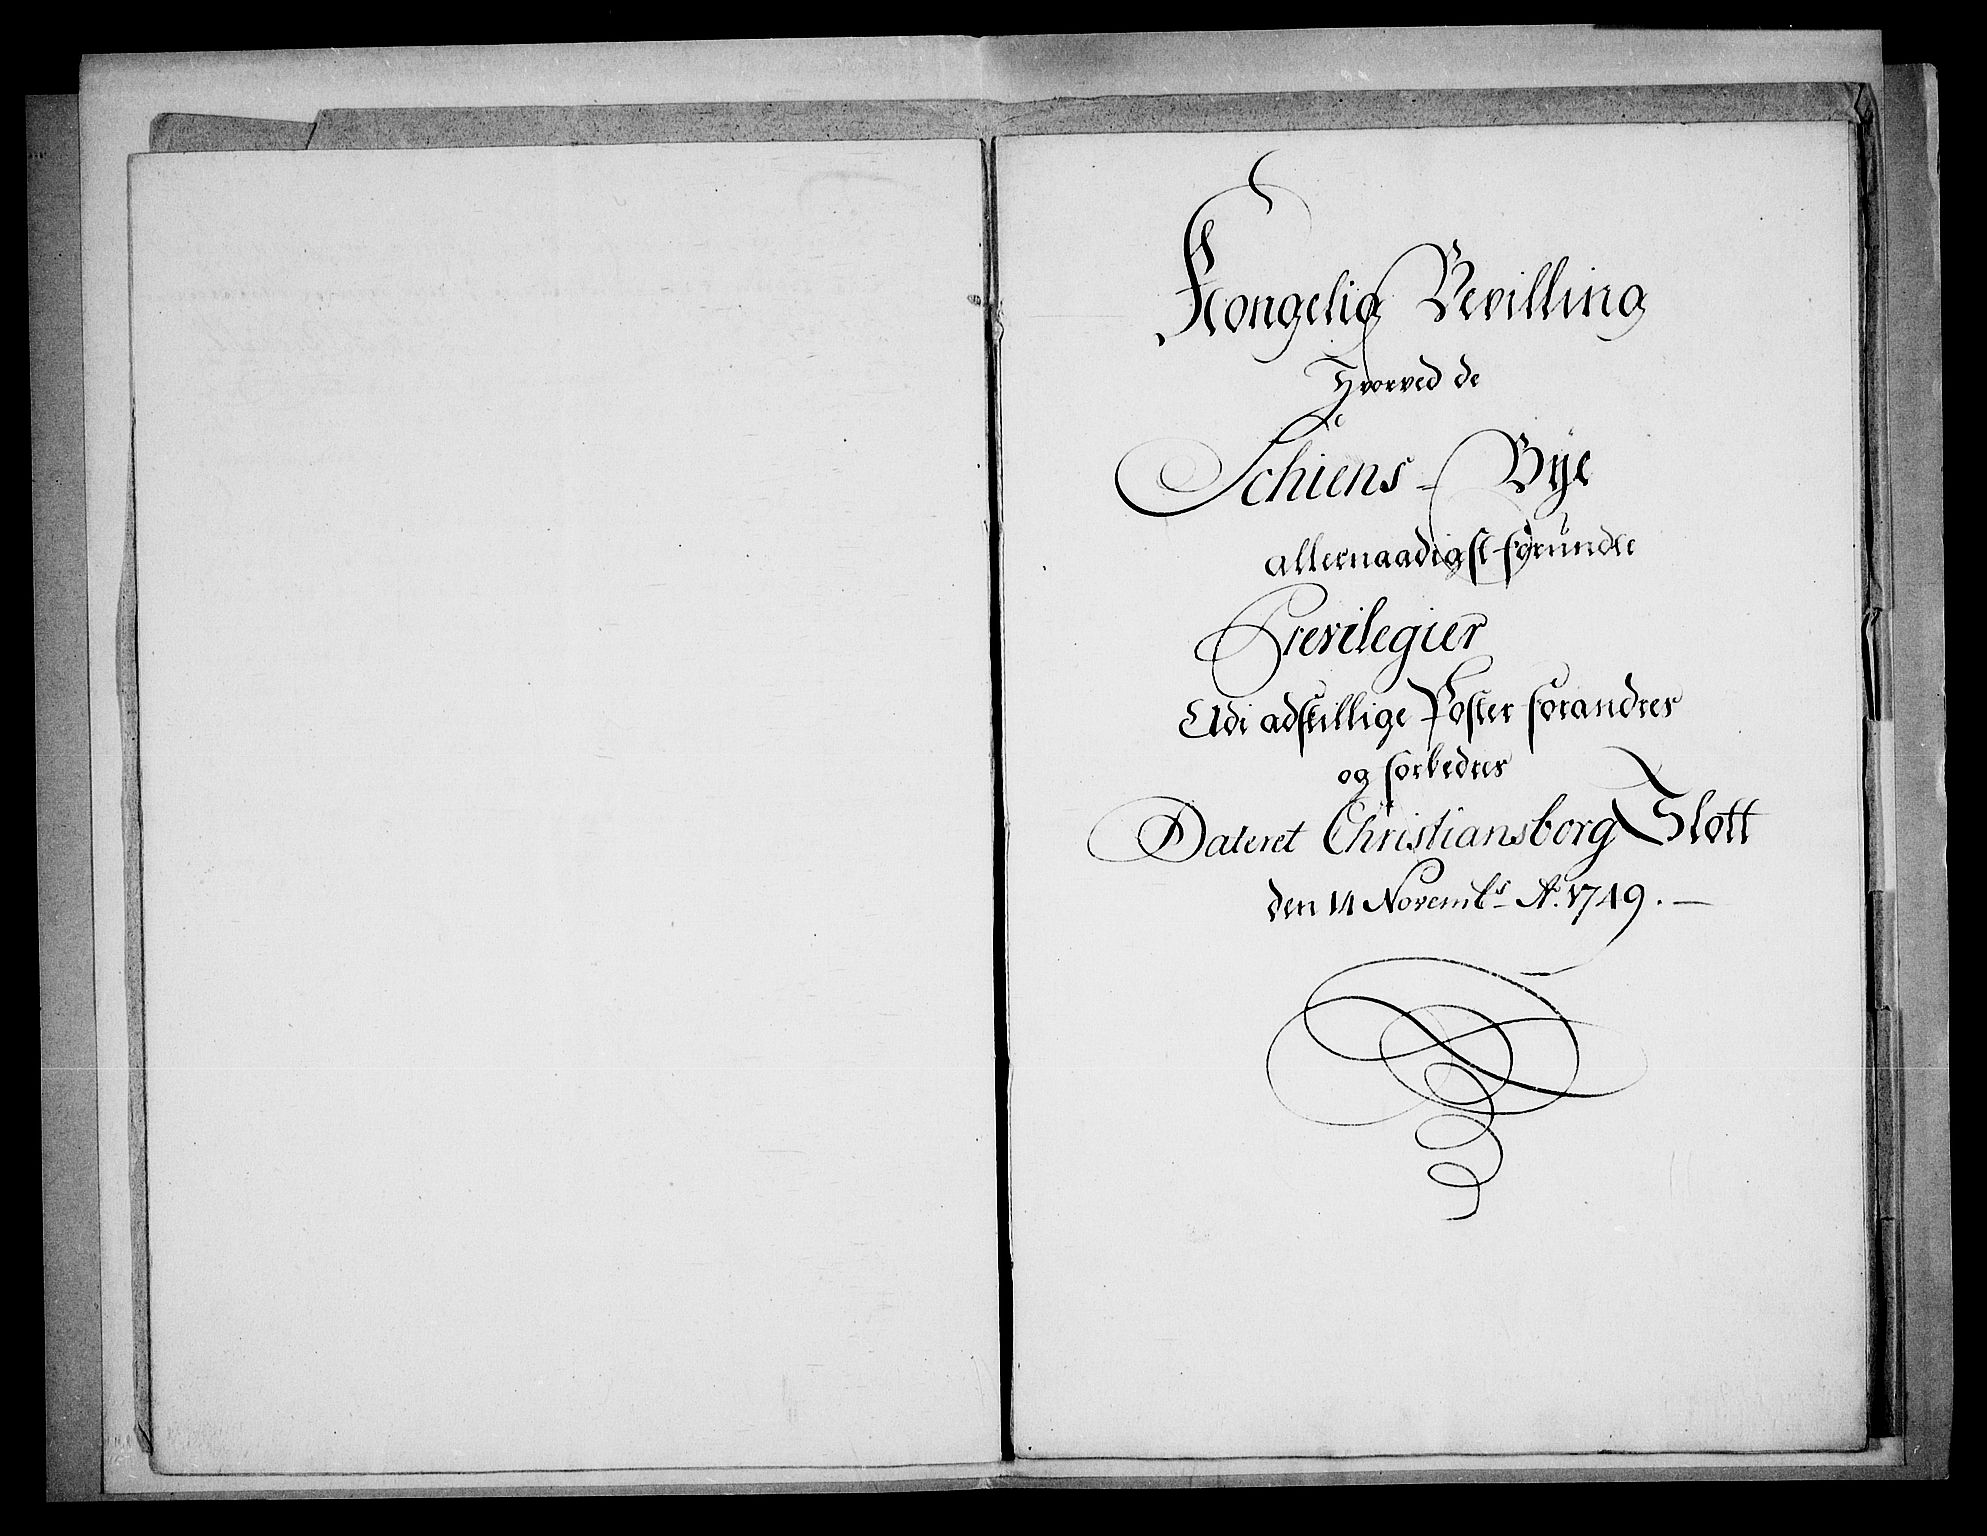 Kongelig Bevilling
Hvorved de
Schiens - Bye
allernaadigst forundte
Previlegier
Udi adskillige Poster forandres
og forbedres
Dateret Christiansborg Slott
den 14 Novembs Ao. 1749. —